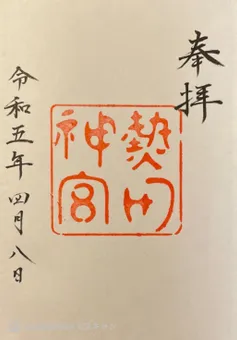 奉拝
熱田
神宮
令和五年 四月 八日